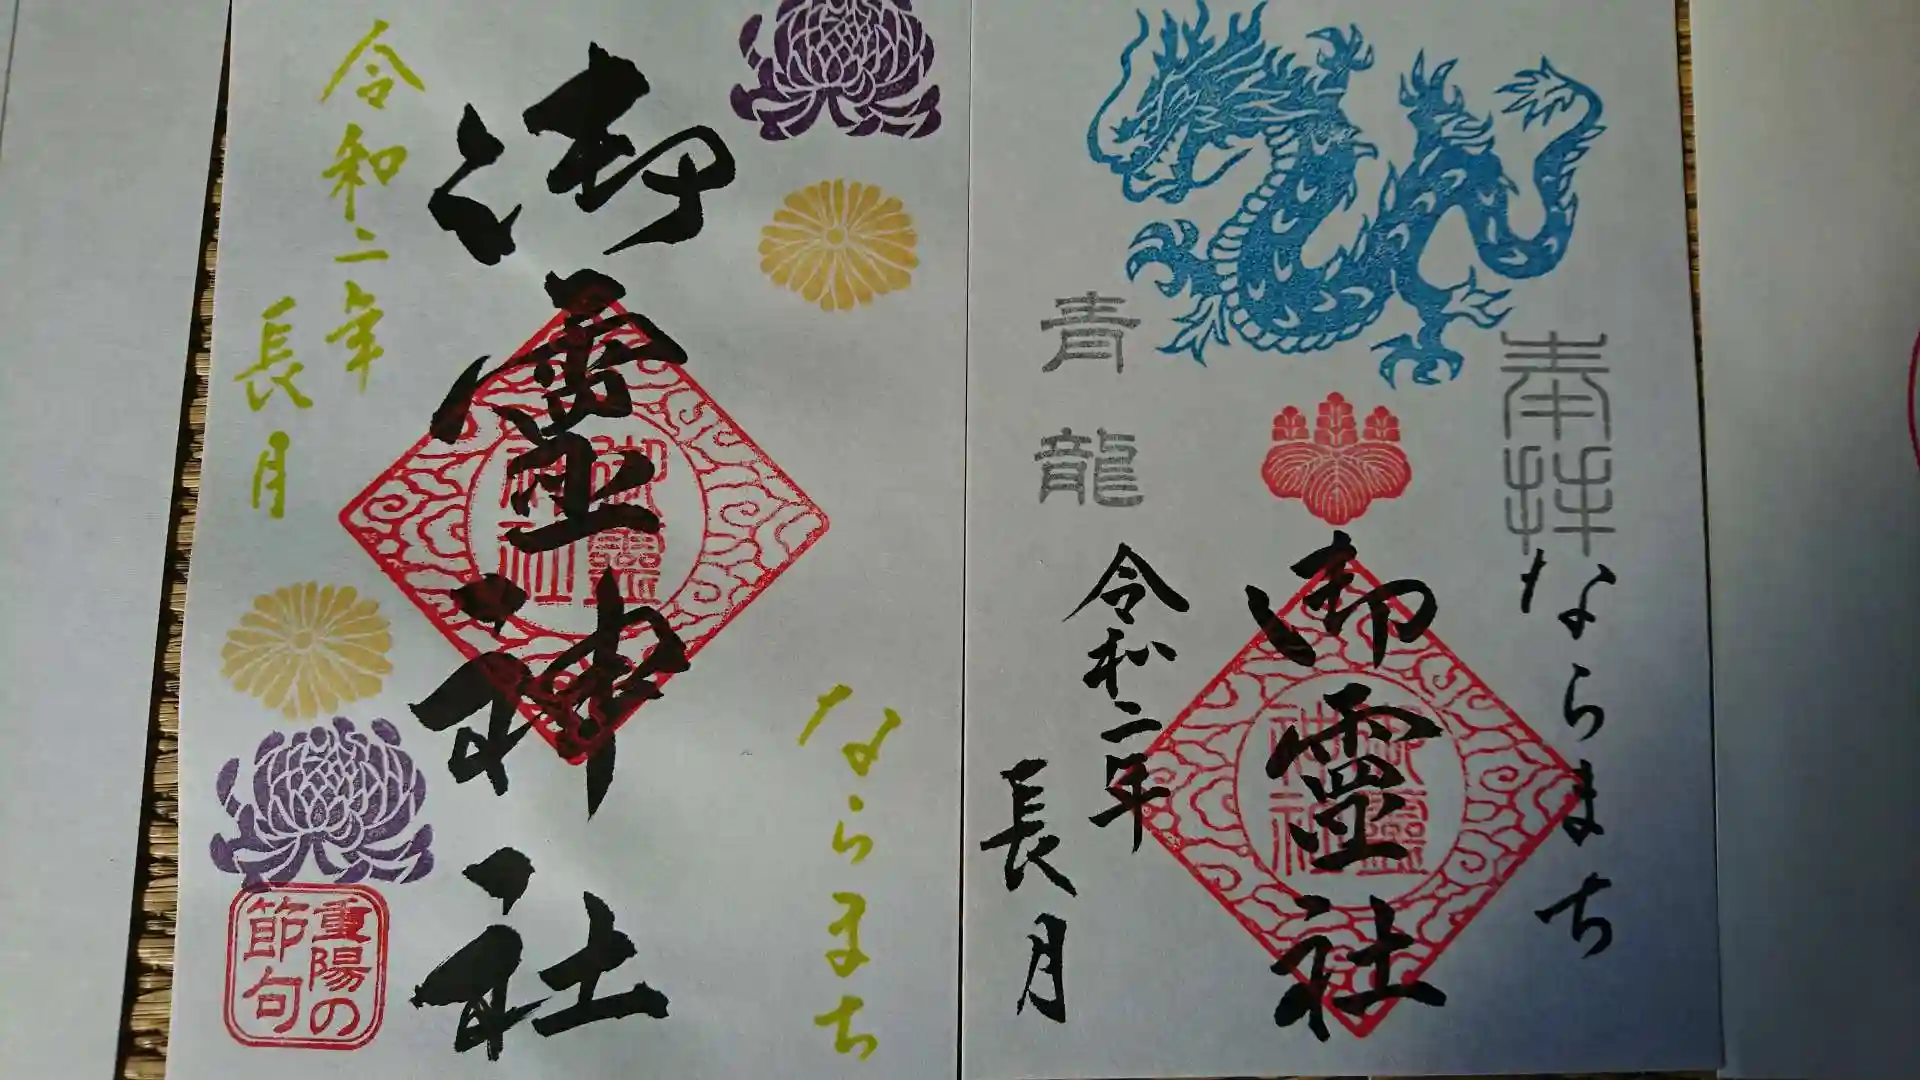 奉拝
ならまち
御霊社
御霊神社
青龍
令和二年
長月
ならまち
御霊神社
御霊神社
令和二年
長月
重陽の
節句